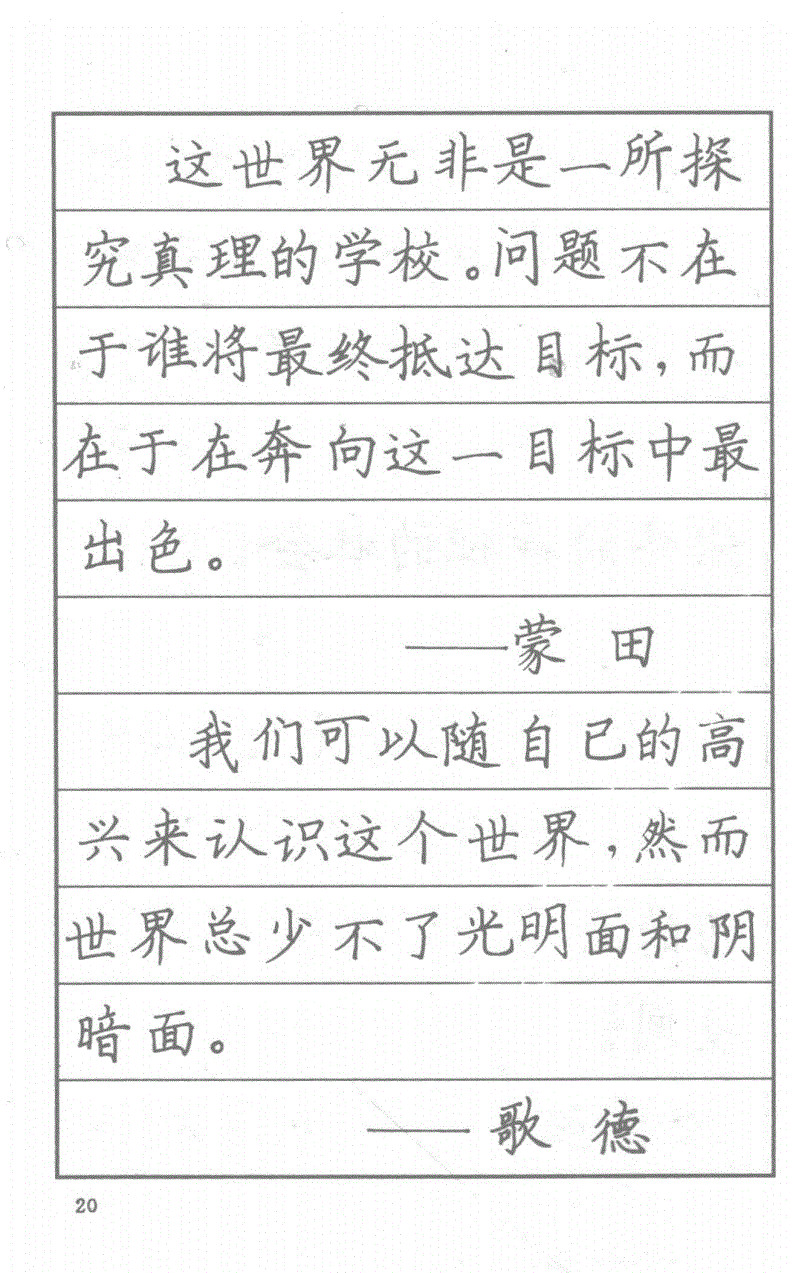 这世界无非是一所探
究真理的学校。问题不在
于谁将最终抵达目标，而
在于在奔向这一目标中最
出色。
——蒙田
我们可以随自已的高
兴来认识这个世界，然而
世界总少不了光明面和阴
暗面。
——歌德
20